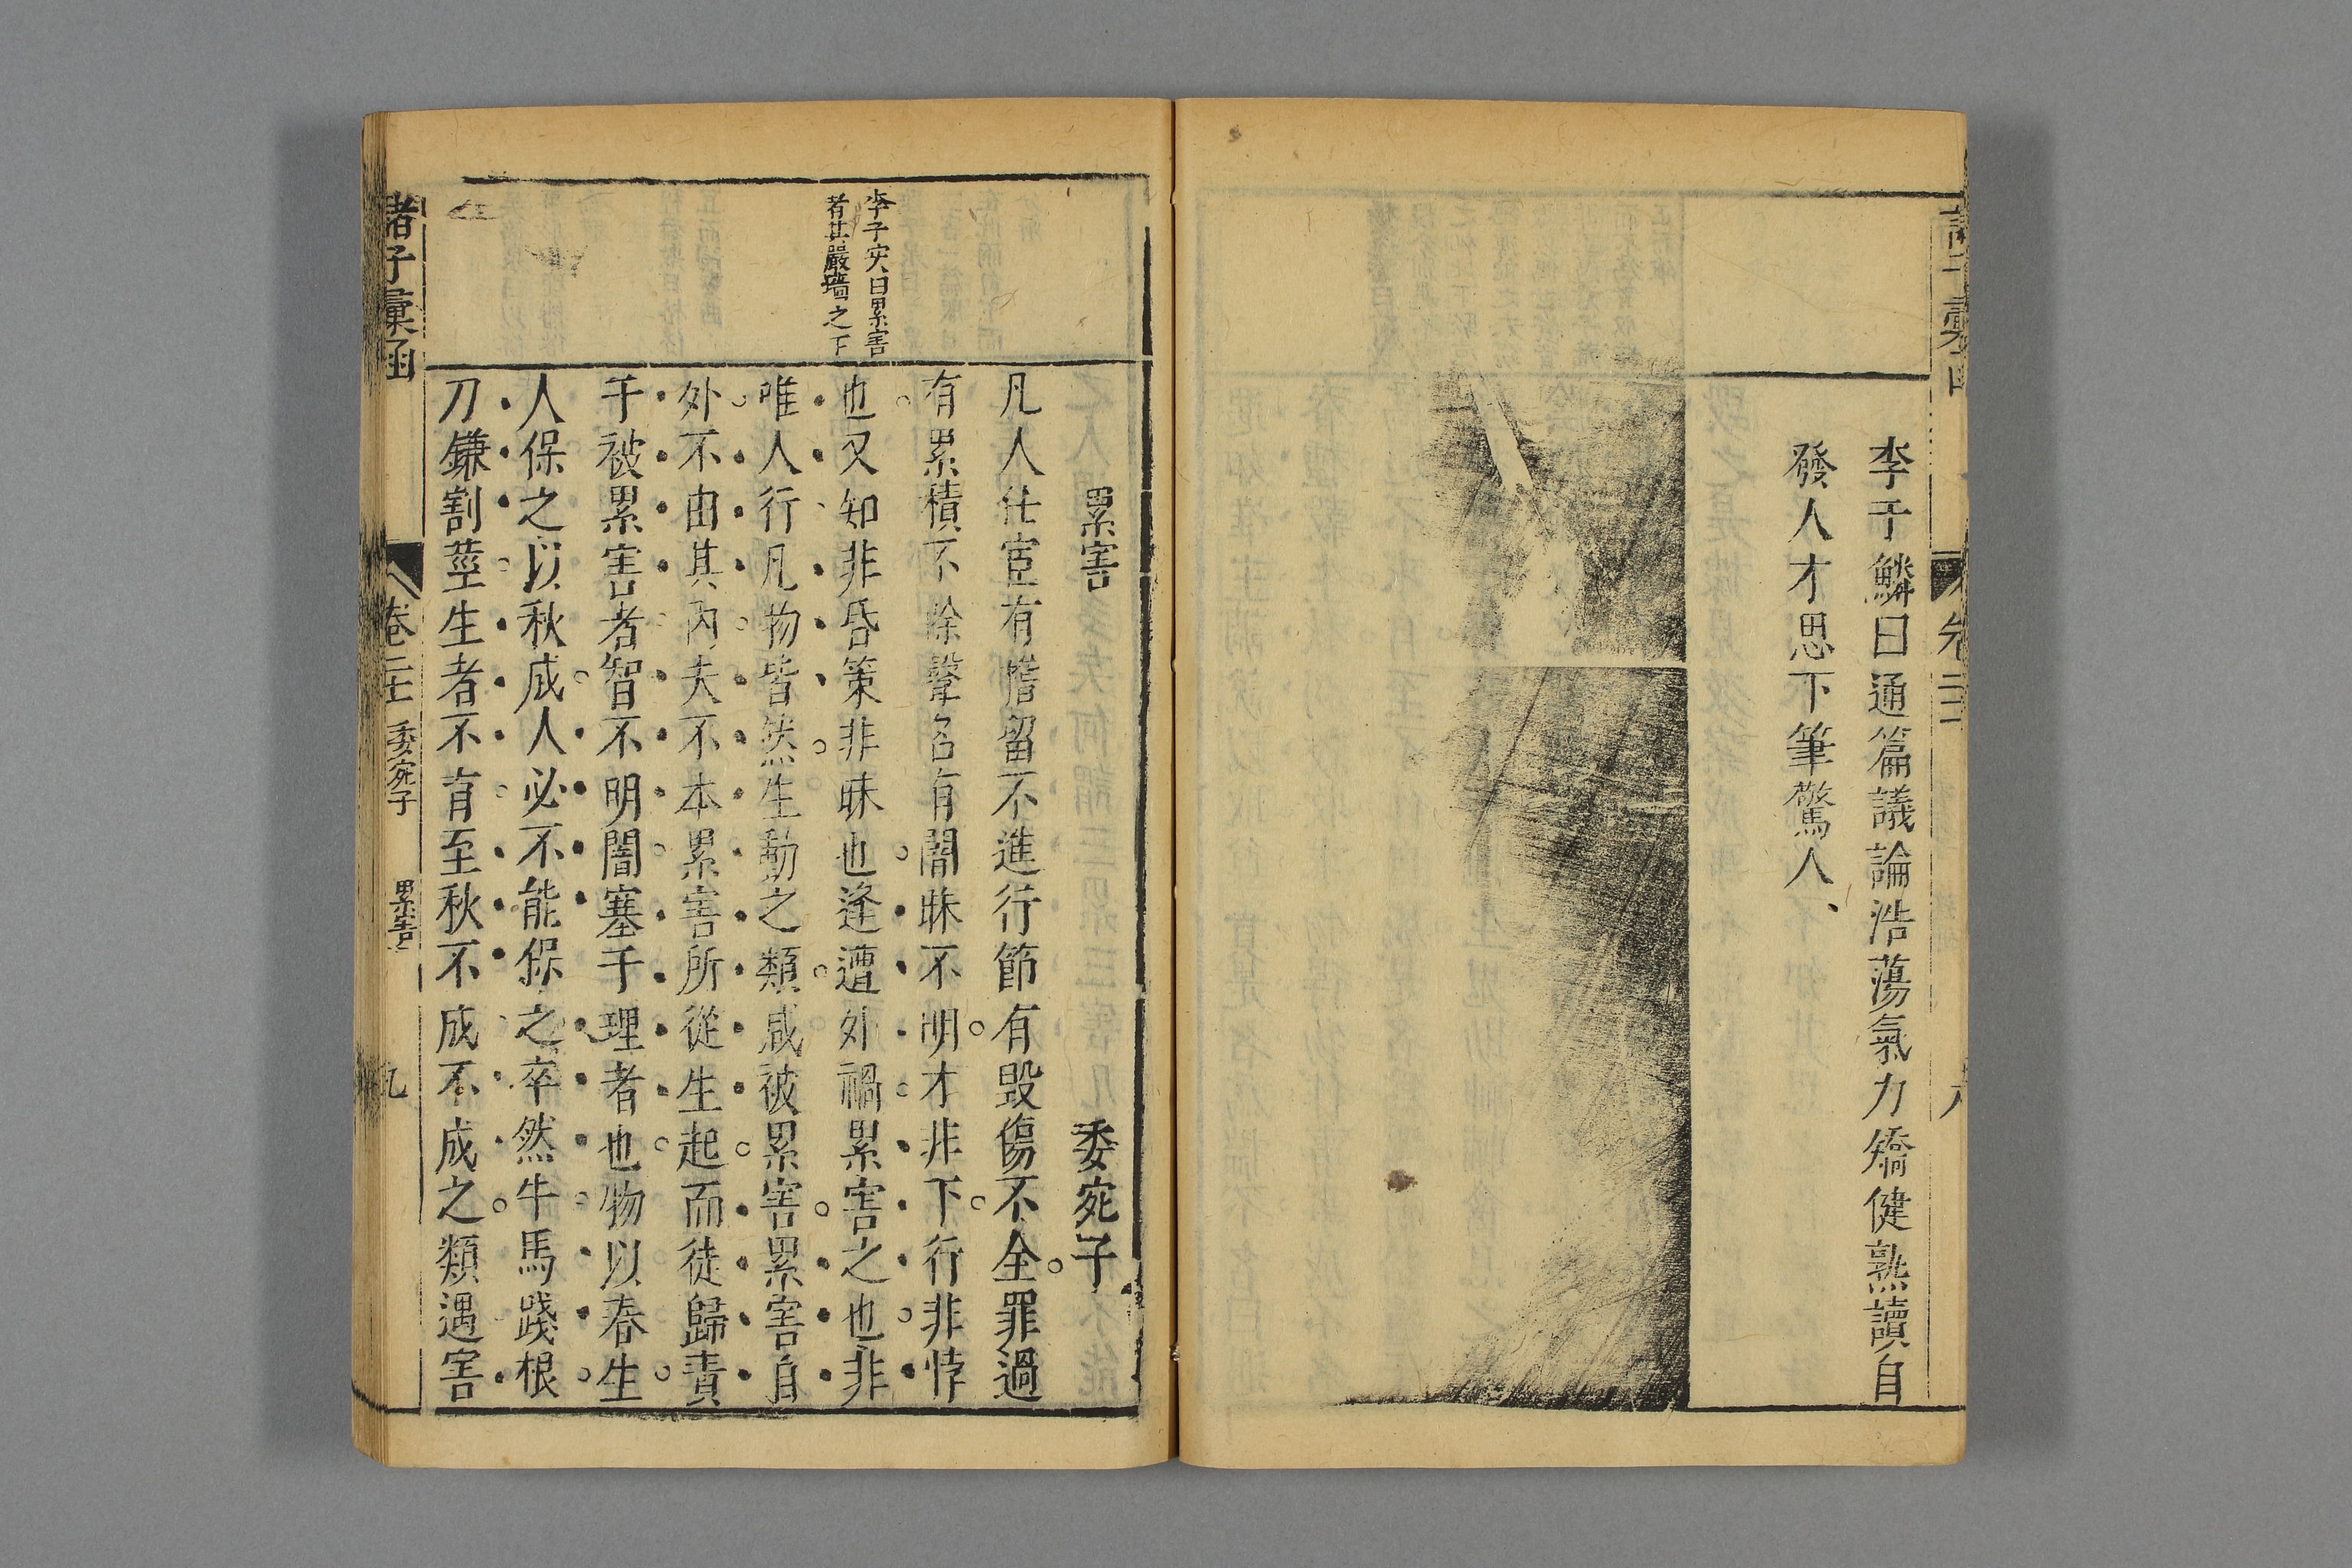 李于鱗曰通篇議論浩蕩氣力矯健熟讀自
發人才思下筆驚人、
李子实曰累害
者甚嚴墻之下
累害 委宛子
凡人仕宦有稽留不進行節有毀傷不全罪過
有累積不除聲名有闇昧不明才非下行非悖
也又知非昏策非昧也逢遭外禍累害之也非
唯人行凡物皆然生動之類咸被累害累害自
外不由其内夫不本累害所從生起而徒歸責
于被累害者智不明闇塞于理者也物以春生
人保之以秋成人必不能保之卒然牛馬踐根
刀鎌割莖生者不育至秋不成不成之類遇害
諸子彙函
卷二十
委宛子
累害
九